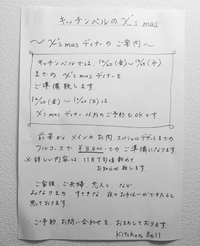 キッチンベルのX's mas
〜 X's mas ディナーのご案内 〜
キッチンベルでは、12/20(金)〜12/25(水)
までの X's mas ディナーを
ご準備致します
12/20(金)〜12/22(日)は
X's mas ディナー以外のご予約もOKです
前菜から メインのお肉 スペシャルデザートまでの
フルコースで ¥8,800-でのご準備になります
※詳しい内容は 11月下旬頃
お知らせ致します
ご家族、ご夫婦、恋人と など
みなさまの すてきな 夜のお手伝いができたらと
思っております
ご予約、お問い合わせを お待ちしております
Kitchen Bell